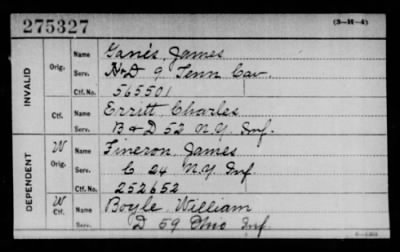 275327 (3-H-4)
INVALID
Orig. Name James
Serv. H & D 9 Tenn Cav.
Ctf. No. 565501
Ctf. Name Erritt, Charles
Serv. B & D 52 N.Y. Inf.
DEPENDENT
W Orig. Name Fineron, James
Serv. C. 24 N.Y. Inf
Ctf. No. 252652
W Ctf. Name Boyle William
Serv. D 59 Ohio Inf.